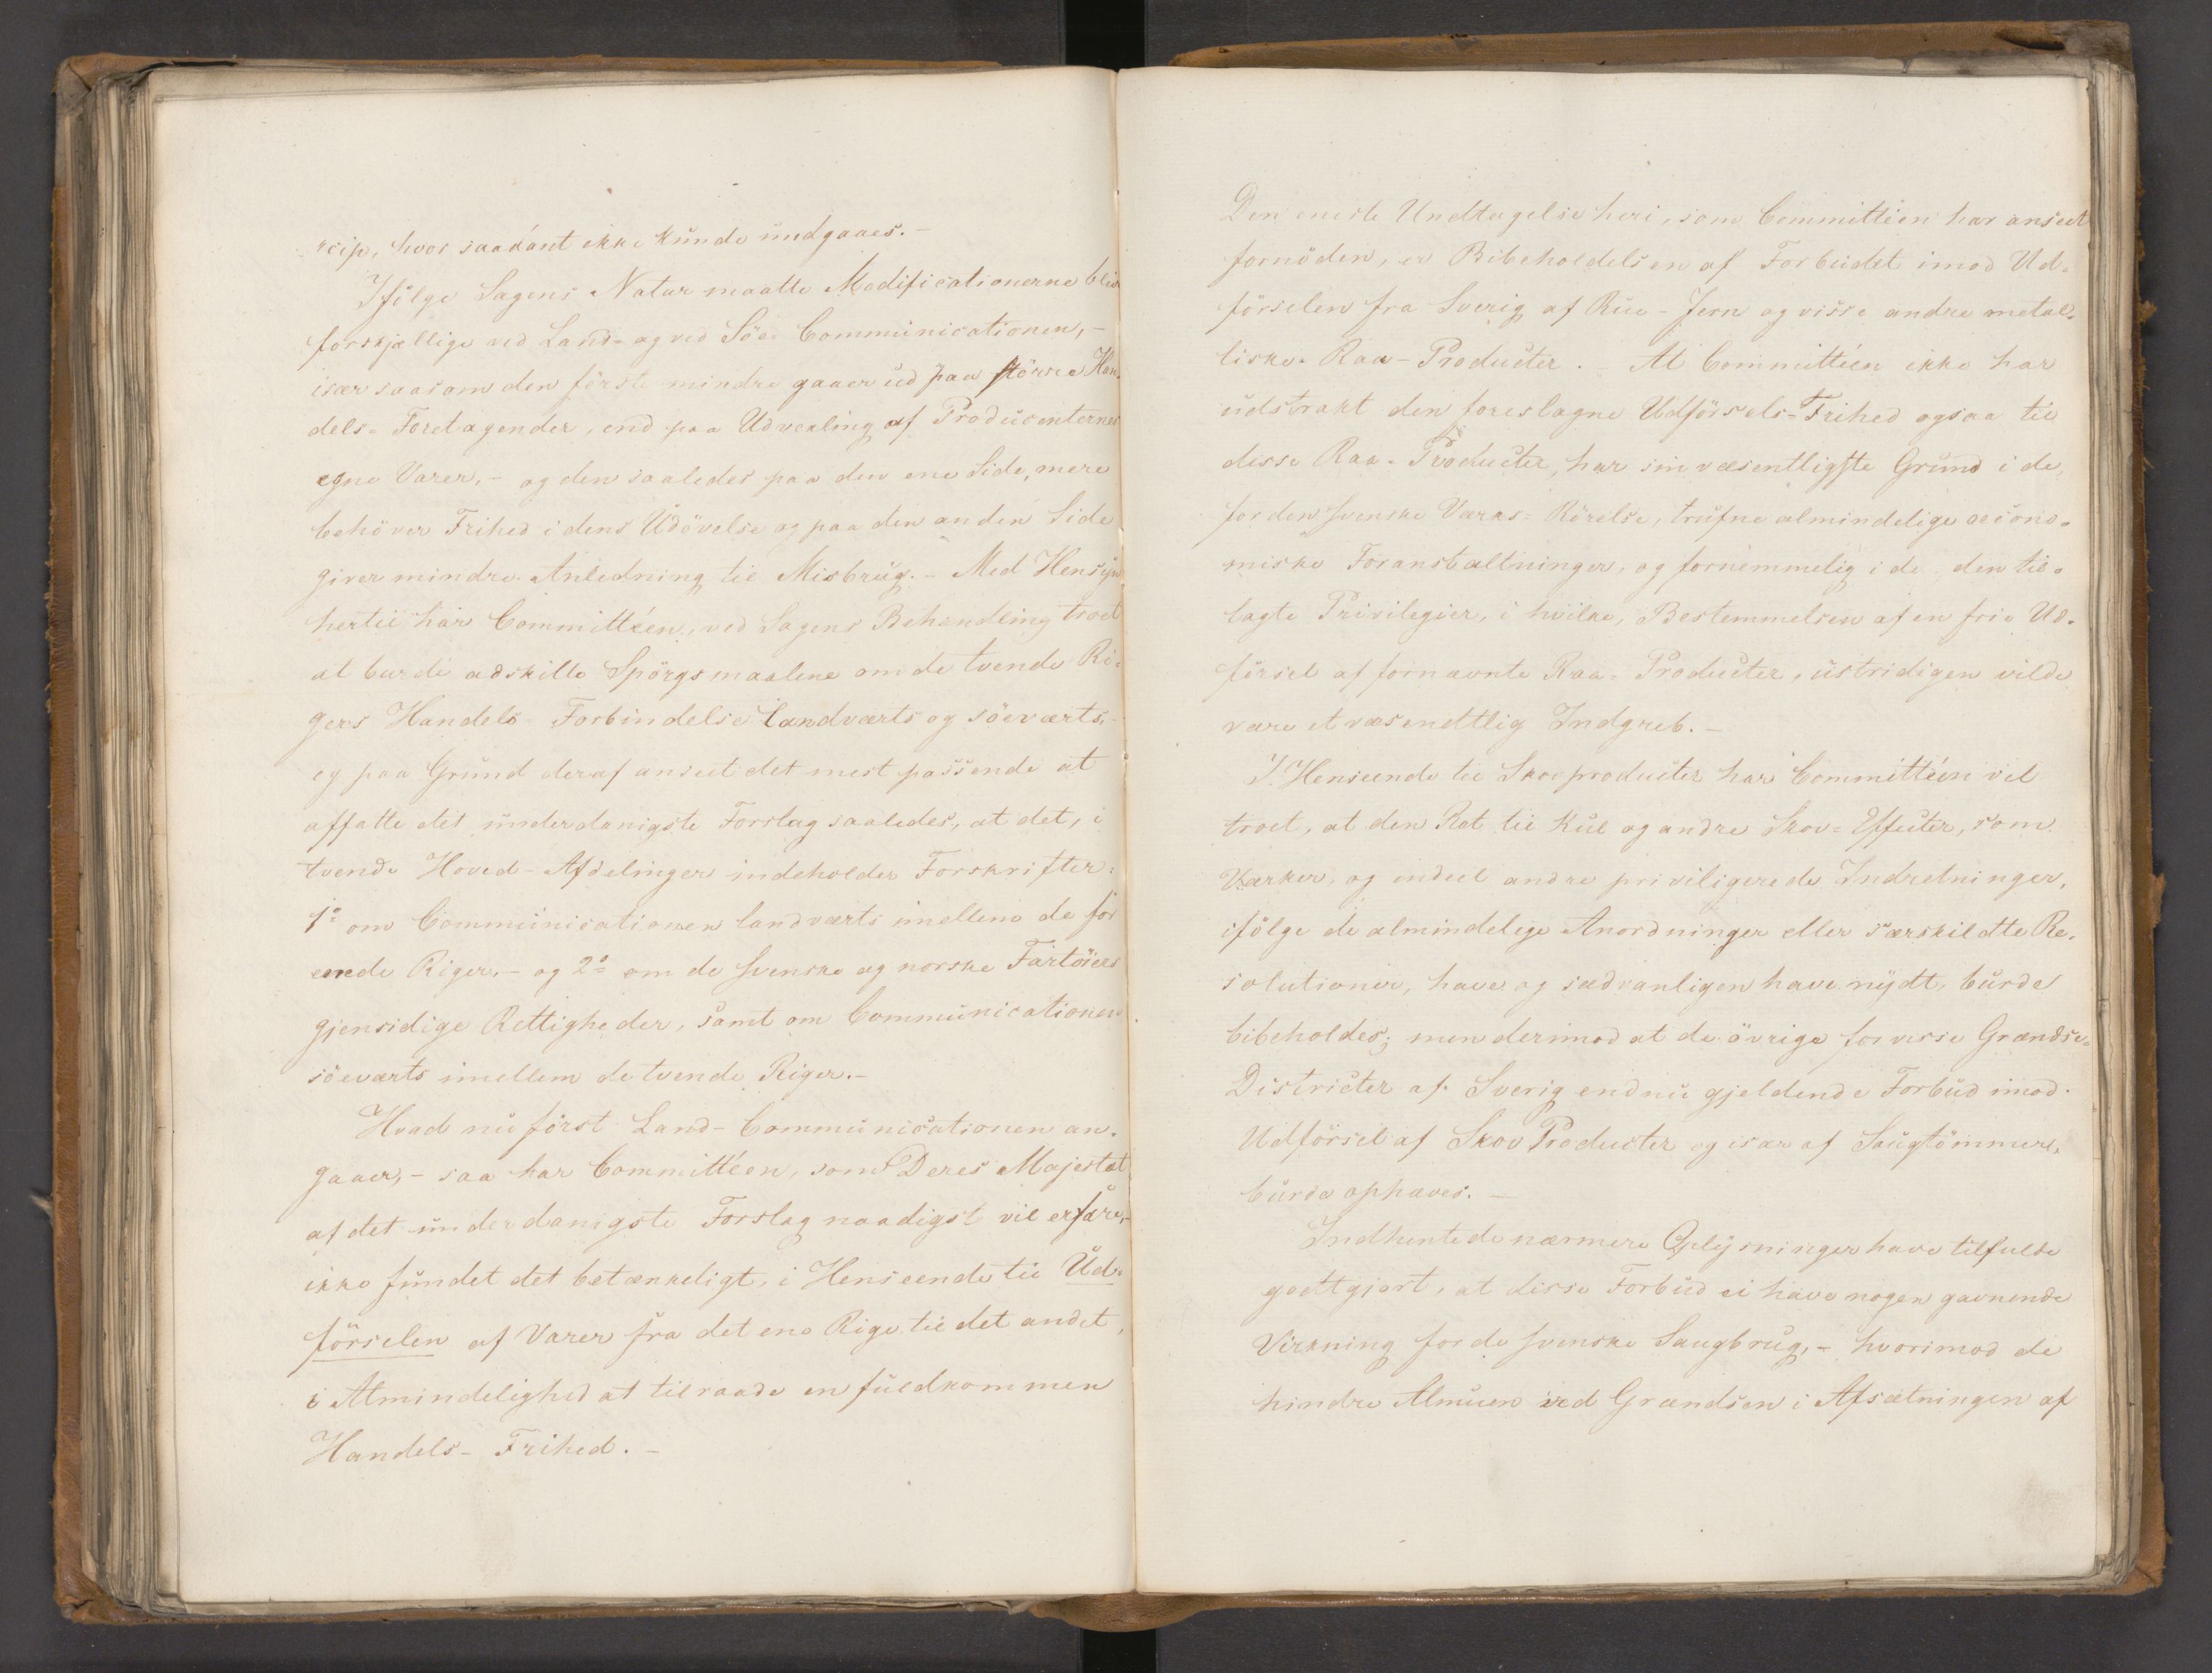 "cip, hvor saadant ikke kunde undgaaes.-
Ifølge Sagens Natur maatte Modificationerne bliv
forskjellige ved Land- og ved Söe- Communicationen,-
især saasom den förste mindre gaaer ud paa större Han-
dels- Foretagender, end paa Udvexling af Producenternes
egne Varer,- og den saaledes paa den ene Side, mere
behöver Frihed i dens Udövelse og paa den anden Side
giver mindre Anledning til Misbrug.- Med Hensyn
hertil har Committéen, ved Sagens Behandling troet
at burde adskille Spörgsmaalene om de tvende Ri-
gers Handels- Forbindelse landværts og söeværts,-
og paa Grund deraf anseet det mest passende at
affatte det underdanigste Forslag saaledes, at det, i
tvende Hoved-Afdelinger indeholder Forskrifter:
1º om Communicationen landværts imellem de for
enede Riger,- og 2º om de svenske og norske Fartöiers
gjensidige Rettigheder, samt om Communicationen
söeværts imellem de tvende Riger.-
Hvad nu först Land-Communicationen an-
gaaer,- saa har Committéen, som Deres Majestæt
af det underdanigste Forslag naadigst vil erfare,-
ikke fundet det betænkeligt, i Henseende til Ud-
förselen af Varer fra det ene Rige til det andet,
i Almindelighed at tilraade en fuldkommen
Handels- Frihed.-
Den eneste Undtagelse heri, som Committéen har anseet
fornöden, er Bibeholdelsen af Forbudet imod Ud-
förselen fra Sverig af Rue-Jern og visse andre metal-
liske Raa-Producter.- At Committéen ikke har
udstrakt den foreslagne Udförsels-Frihed ogsaa til
disse Raa-Producter, har sin væsentligste Grund i de,
for den svenske Værks-Rörelse, trufne almindelige oecono-
miske Foranstaltninger, og fornemmelig i de den til-
lagte Privilegier, i hvilke, Bestemmelsen af en fri Ud-
försel af fornævnte Raa-Producter, ustridigen vilde
være et væsendtlig Indgreb.-
I Henseende til Skovproducter har Committéen vel
troet, at den Ret til Kul og andre Skov-Effecter, som
Værker, og endeel andre priviligerede Indretninger,
ifölge de almindelige Anordninger eller særskildtte Re-
solutioner, have og sædvanligen have nydt, burde
bibeholdes; men derimod at de övrige for visse Grændse-
Districter af Sverig endnu gjeldende Forbud imod
Udförsel af Skov Producter og især af Saugtömmer,
burde ophæves.-
Indhentede nærmere Oplysninger have tilfulde
godtgjort, at disse Forbud ei have nogen gavnende
Virkning for de svenske Saugbrug,- hvorimod de
hindre Almuen ved Grændsen i Afsætningen af